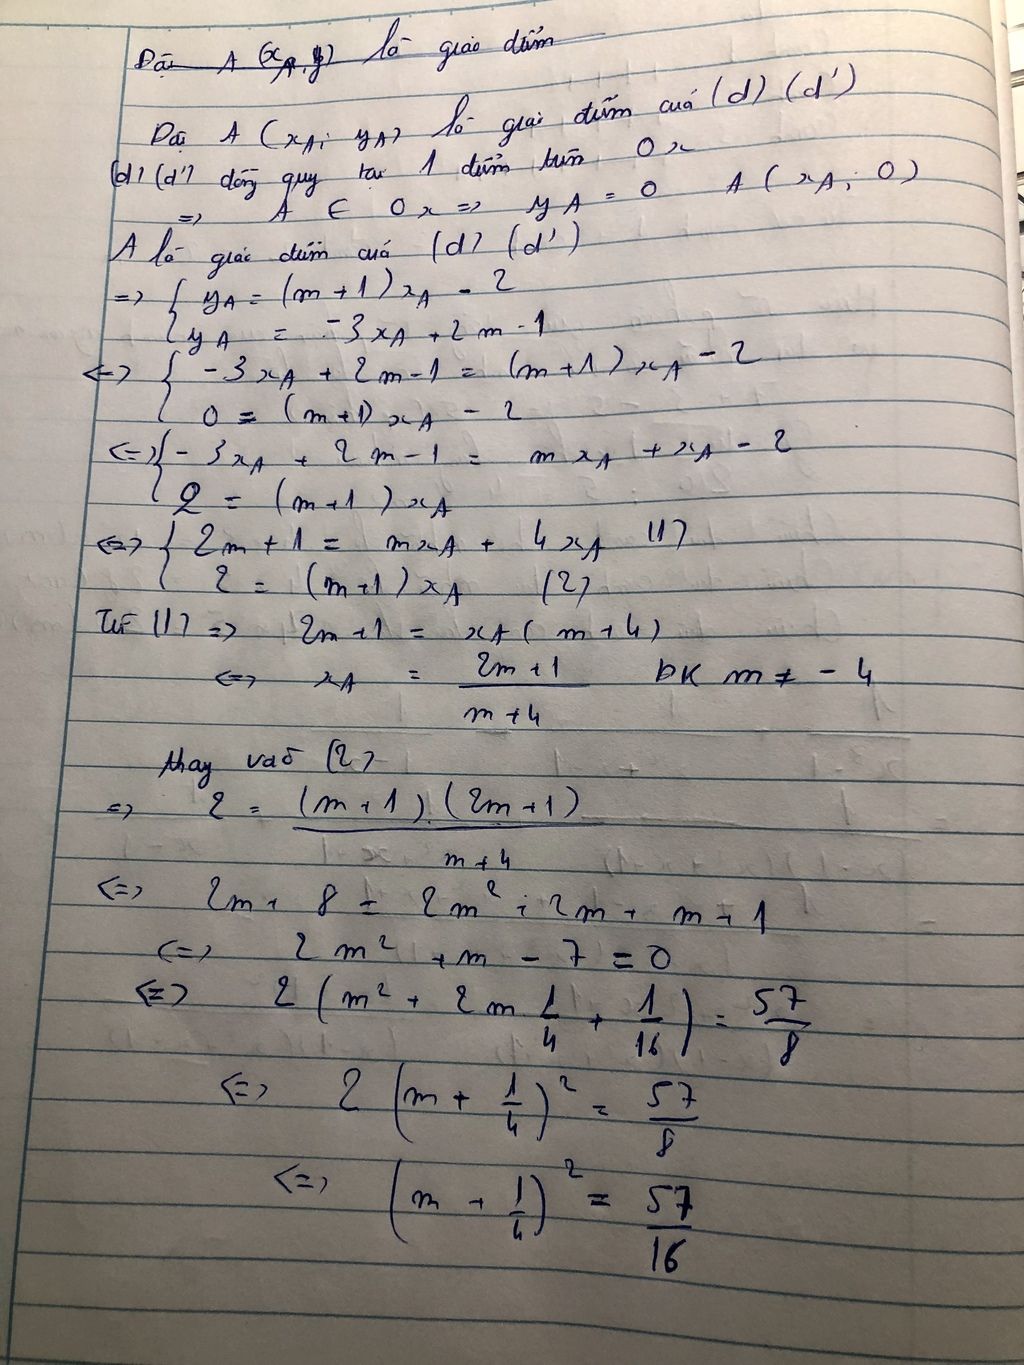 Đặt A (xA, y) là giao điểm
Đặt A (xA; yA) là giao điểm của (d) (d')
(d) (d') đồng quy tại 1 điểm trên Ox
=> A ∈ Ox => yA = 0 A (xA; 0)
A là giao điểm của (d) (d')
=> { yA = (m+1)xA - 2
{ yA = -3xA + 2m - 1
<=> { -3xA + 2m-1 = (m+1)xA - 2
0 = (m+1)xA - 2
<=> { -3xA + 2m-1 = mxA + xA - 2
2 = (m+1)xA
<=> { 2m+1 = mxA + 4xA (1)
2 = (m+1)xA (2)
Từ (1) => 2m+1 = xA(m+4)
<=> xA = (2m+1)/(m+4) ĐK m ≠ -4
thay vào (2)
=> 2 = (m+1).(2m+1)/(m+4)
<=> 2m + 8 = 2m² + 2m + m + 1
<=> 2m² + m - 7 = 0
<=> 2(m² + 2m 1/4 + 1/16) = 57/8
<=> 2(m + 1/4)² = 57/8
<=> (m + 1/4)² = 57/16